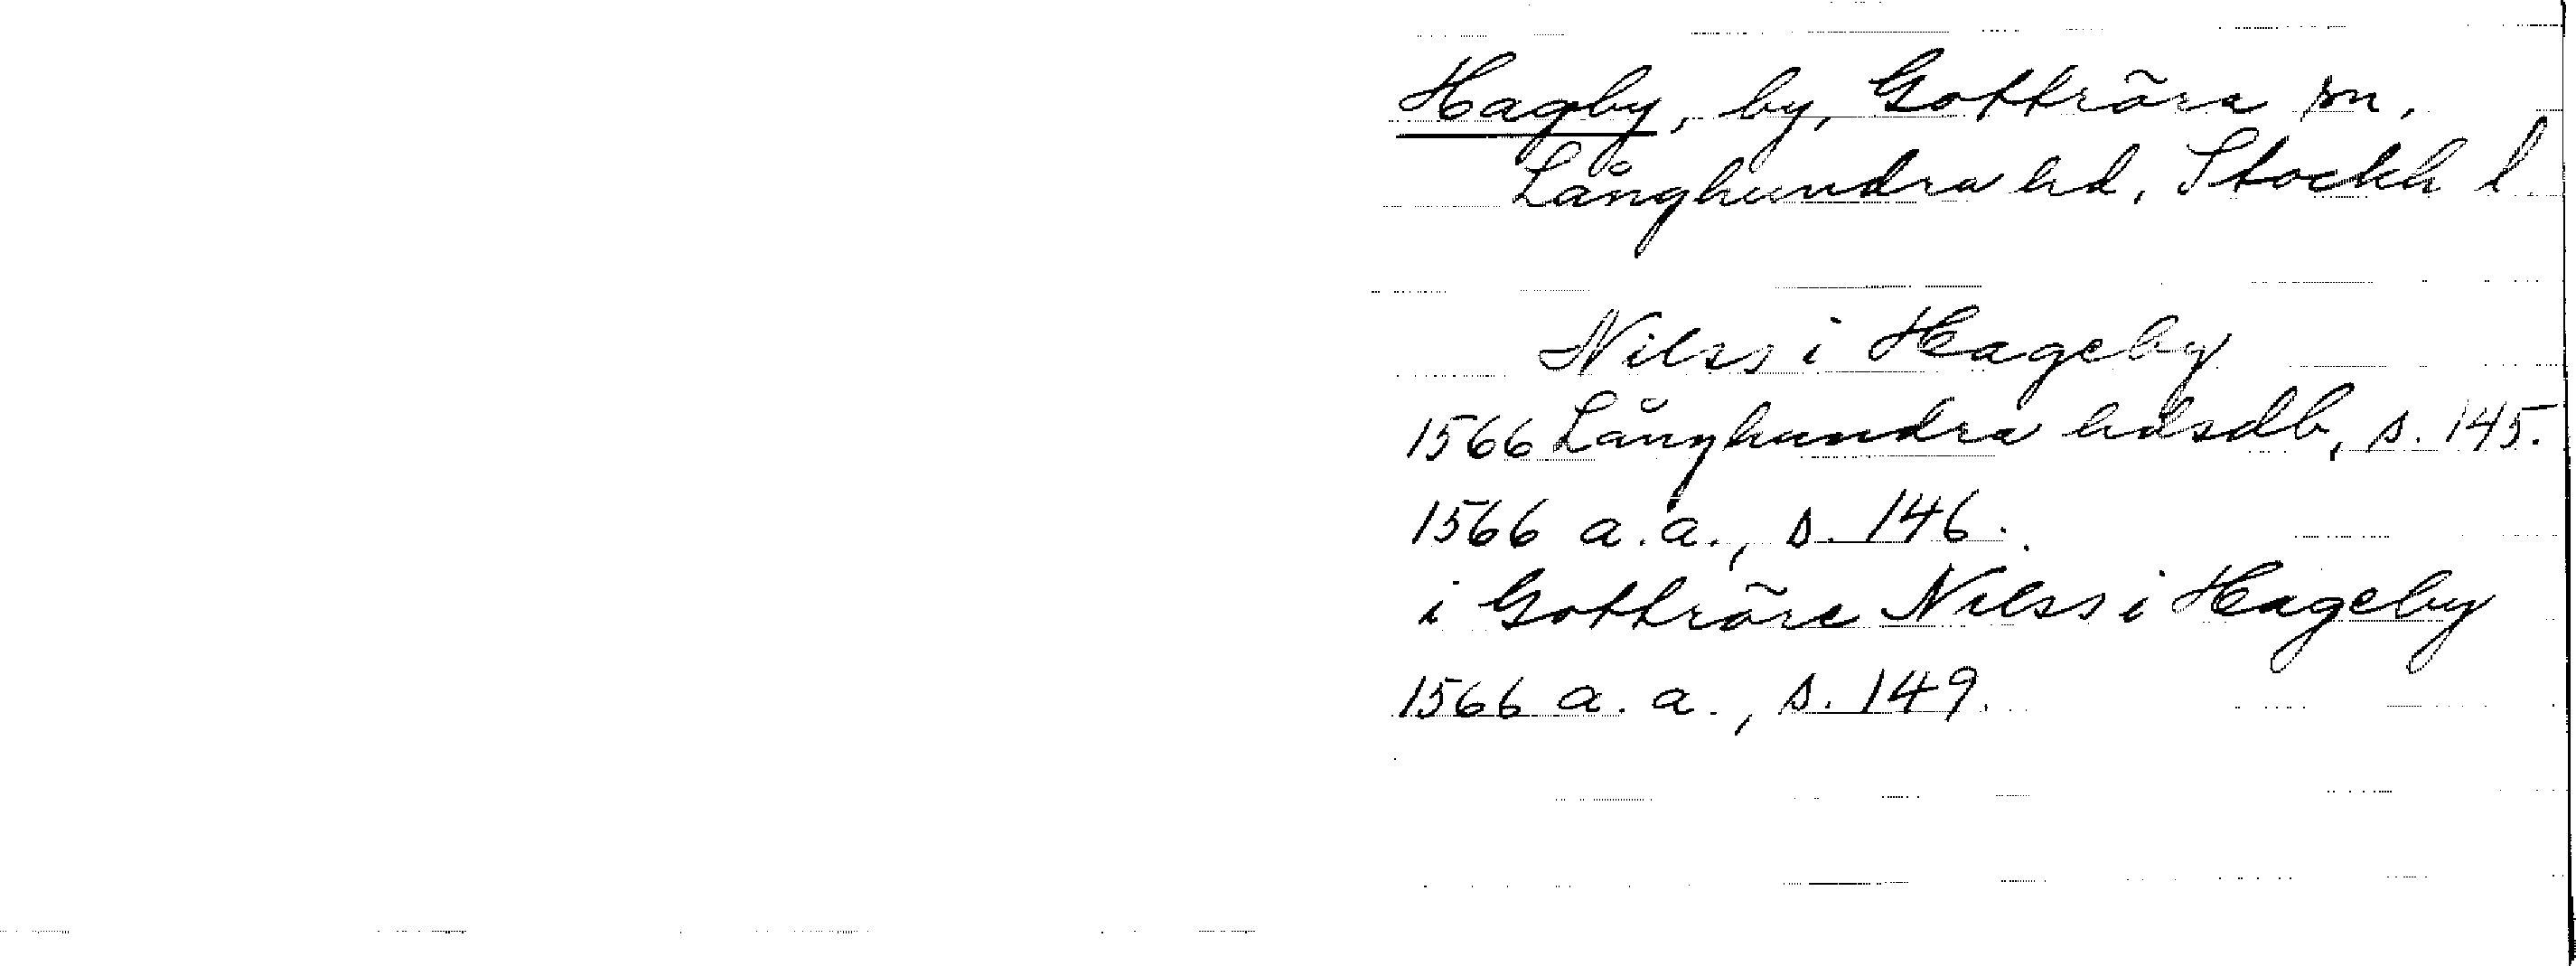 Hagby, by, Gottröra sn.
Långhundra hd. Stockh l
Nilss i Hageby
1566 Långhundra hdsdb, s. 145.
1566 a.a., s. 146.
i Gottröre Nilss i Hageby
1566 a.a., s. 149.